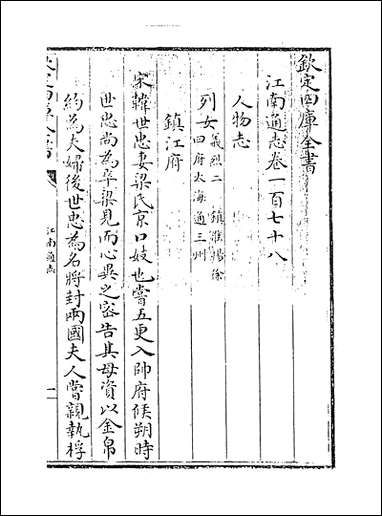 欽定四庫全書
江南通志卷一百七十八
人物志
列女 義烈二 鎮淮揚徐
四府太海通三州
鎮江府
宋韓世忠妻梁氏京口妓也嘗五更入帥府候朔時
世忠尚為卒梁見而心異之宻告其母資以金帛
約為夫婦後世忠為名將封兩國夫人嘗親執桴
江南通志
一